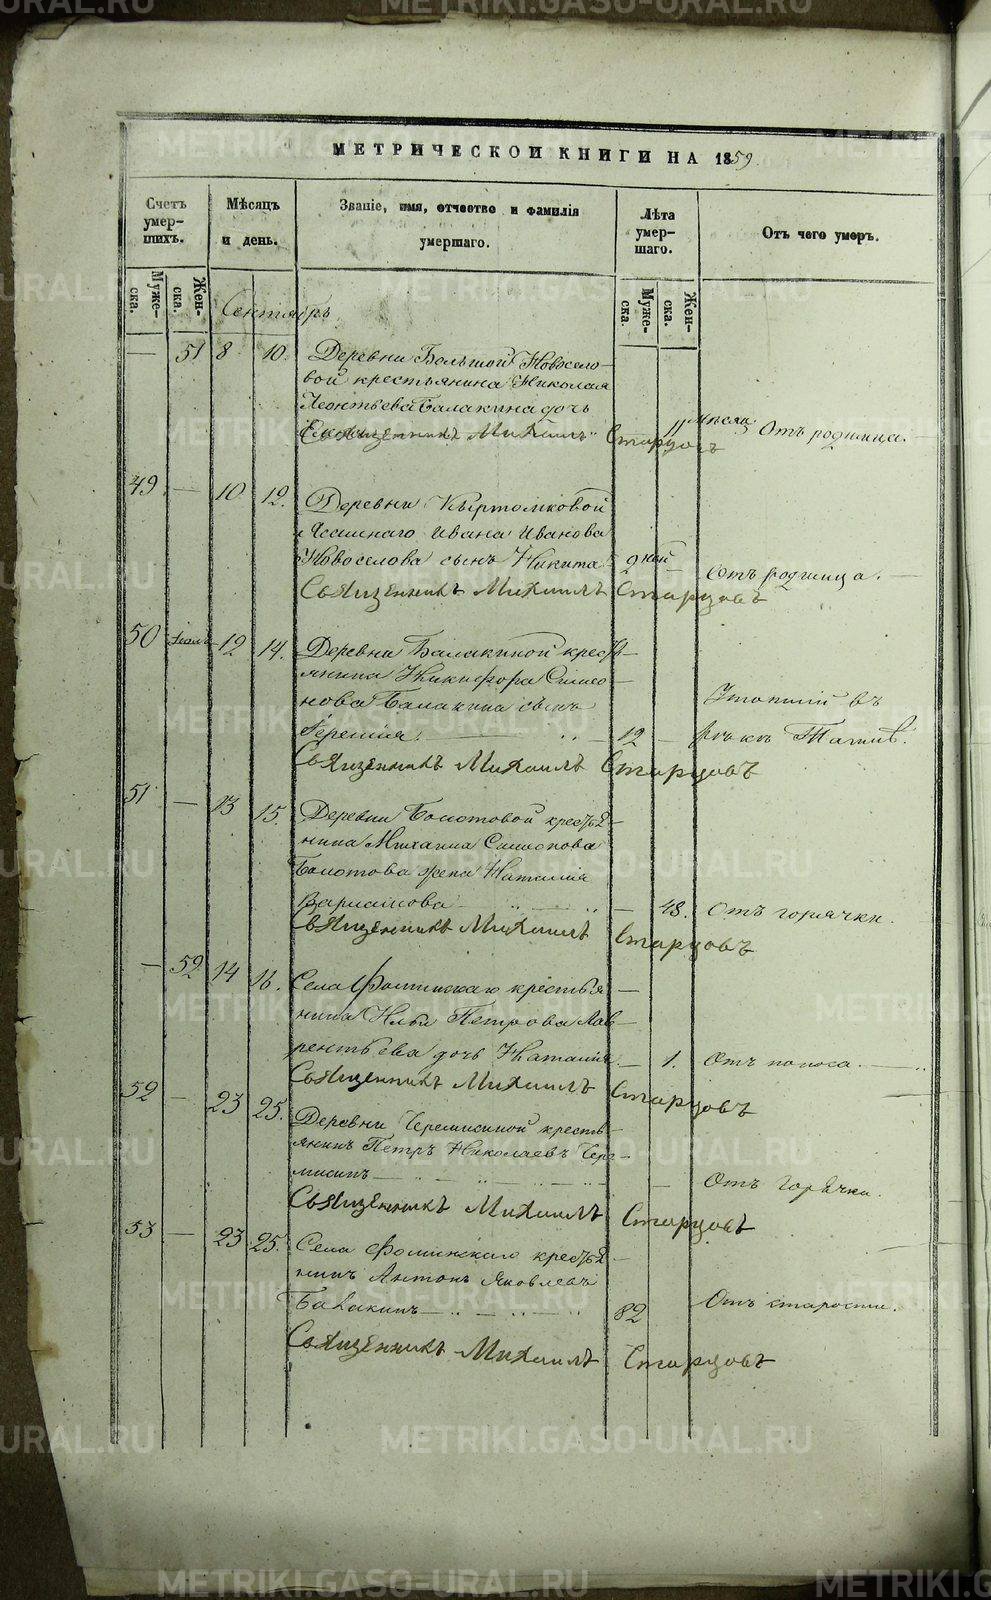 METRIKI.GASO-URAL.RU
МЕТРИЧЕСКОЙ КНИГИ НА 1859.
Счетъ умер-шихъ.
Мѣсяцъ и день.
Званіе, имя, отчество и фамилія умершаго.
Лѣта умер-шаго.
Отъ чего умеръ.
Муже-ска.
Жен-ска.
Муже-ска.
Жен-ска.
Сентябрь
— 51 8 10. Деревни Большой Новосело-
вой крестьянина Николая
Леонтьева Балакина дочь
11 мѣсяц Отъ родимца. —
Священникъ Михаилъ Старцовъ
49 — 10 12. Деревни Кыртомковой
Ивана Иванова
Новоселова сынъ Никита 2 — Отъ родимца. —
Священникъ Михаилъ Старцовъ
50 12 14. Деревни Балакиной кресть-
янина Никифора Симео-
нова Балакина сынъ
12 — Утопшій въ
рѣкѣ Тагилѣ.
Священникъ Михаилъ Старцовъ
51 — 13 15. Деревни Болотовой крестья-
нина Михаила Симеонова
Болотова жена Наталія
Варламова — 48. Отъ горячки.
Священникъ Михаилъ Старцовъ
— 52 14 16. Села Фоминскаго крестья-
нина Ильи Петрова Лав-
рентьева дочь Наталія — 1. Отъ поноса. —
Священникъ Михаилъ Старцовъ
52 — 23 25. Деревни Черемисиной кресть-
янинъ Петръ Николаевъ Чере-
мисинъ — Отъ горячки.
Священникъ Михаилъ Старцовъ
53 — 23 25. Села Фоминскаго крестья-
нинъ Антонъ Яковлевъ
Балакинъ — 82 Отъ старости.
Священникъ Михаилъ Старцовъ